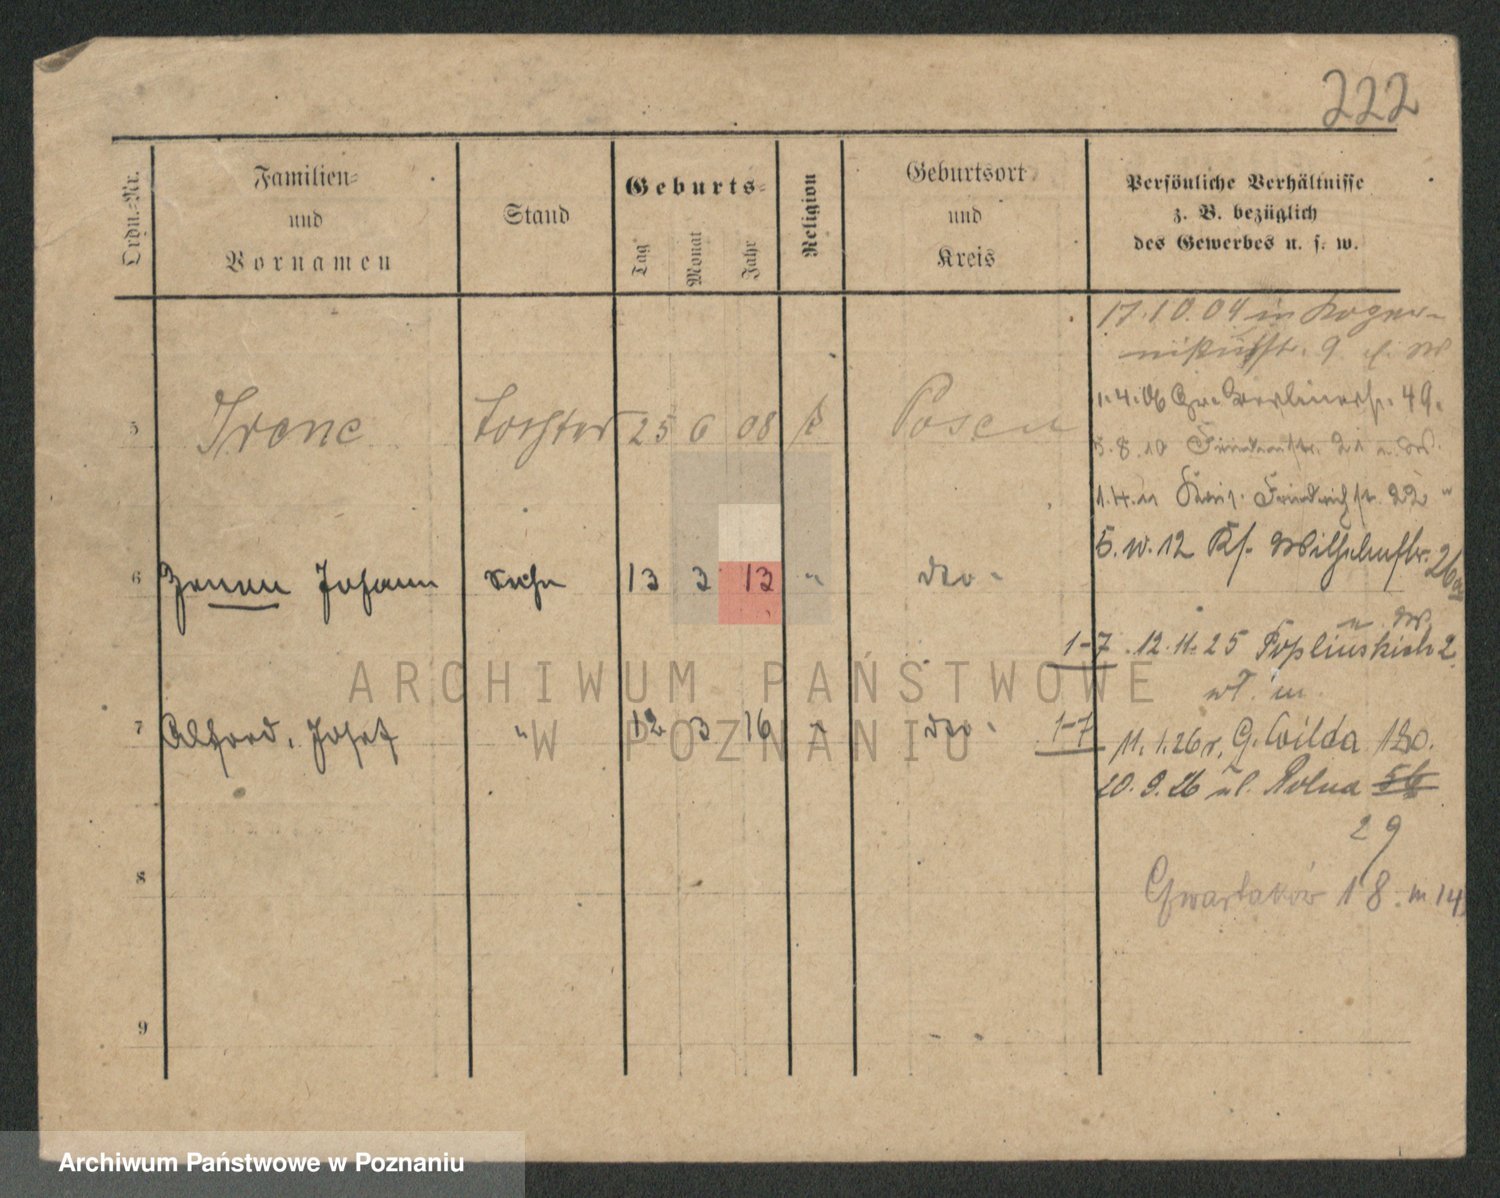 222
Ordn.-Nr.
Familien-
und
Vornamen
Stand
Geburts-
Tag
Monat
Jahr
Religion
Geburtsort
und
Kreis
Persönliche Verhältnisse
z. B. bezüglich
des Gewerbes u. s. w.
17.10.04 in
9
1.4.06 Gr. Berlinerstr. 49.
5 Irene Tochter 25 6 08 k Posen
5.8.10 21
1.4.11 Friedrichstr. 22 "
6 Zenon Johann Sohn 13 3 13 " dto -
5.IV.12
1-7 12.11.25 Poplińskich 2
w
7 Alfred, Josef " 12 3 16 " dto - 1-7
11.1.26 r. G. Wilda 120.
20.9.26 ul. Rolna 56
29
8
Czwartaków 18. m 14
9
ARCHIWUM PAŃSTWOWE
W POZNANIU
Archiwum Państwowe w Poznaniu